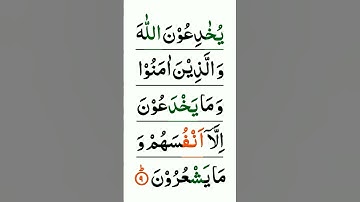 يُخٰدِعُوْنَ اللّٰهَ
وَالَّذِيْنَ اٰمَنُوْا
وَمَا يَخْدَعُوْنَ
اِلَّاۤ اَنْفُسَهُمْ وَ
مَا يَشْعُرُوْنَ ؕ ۹